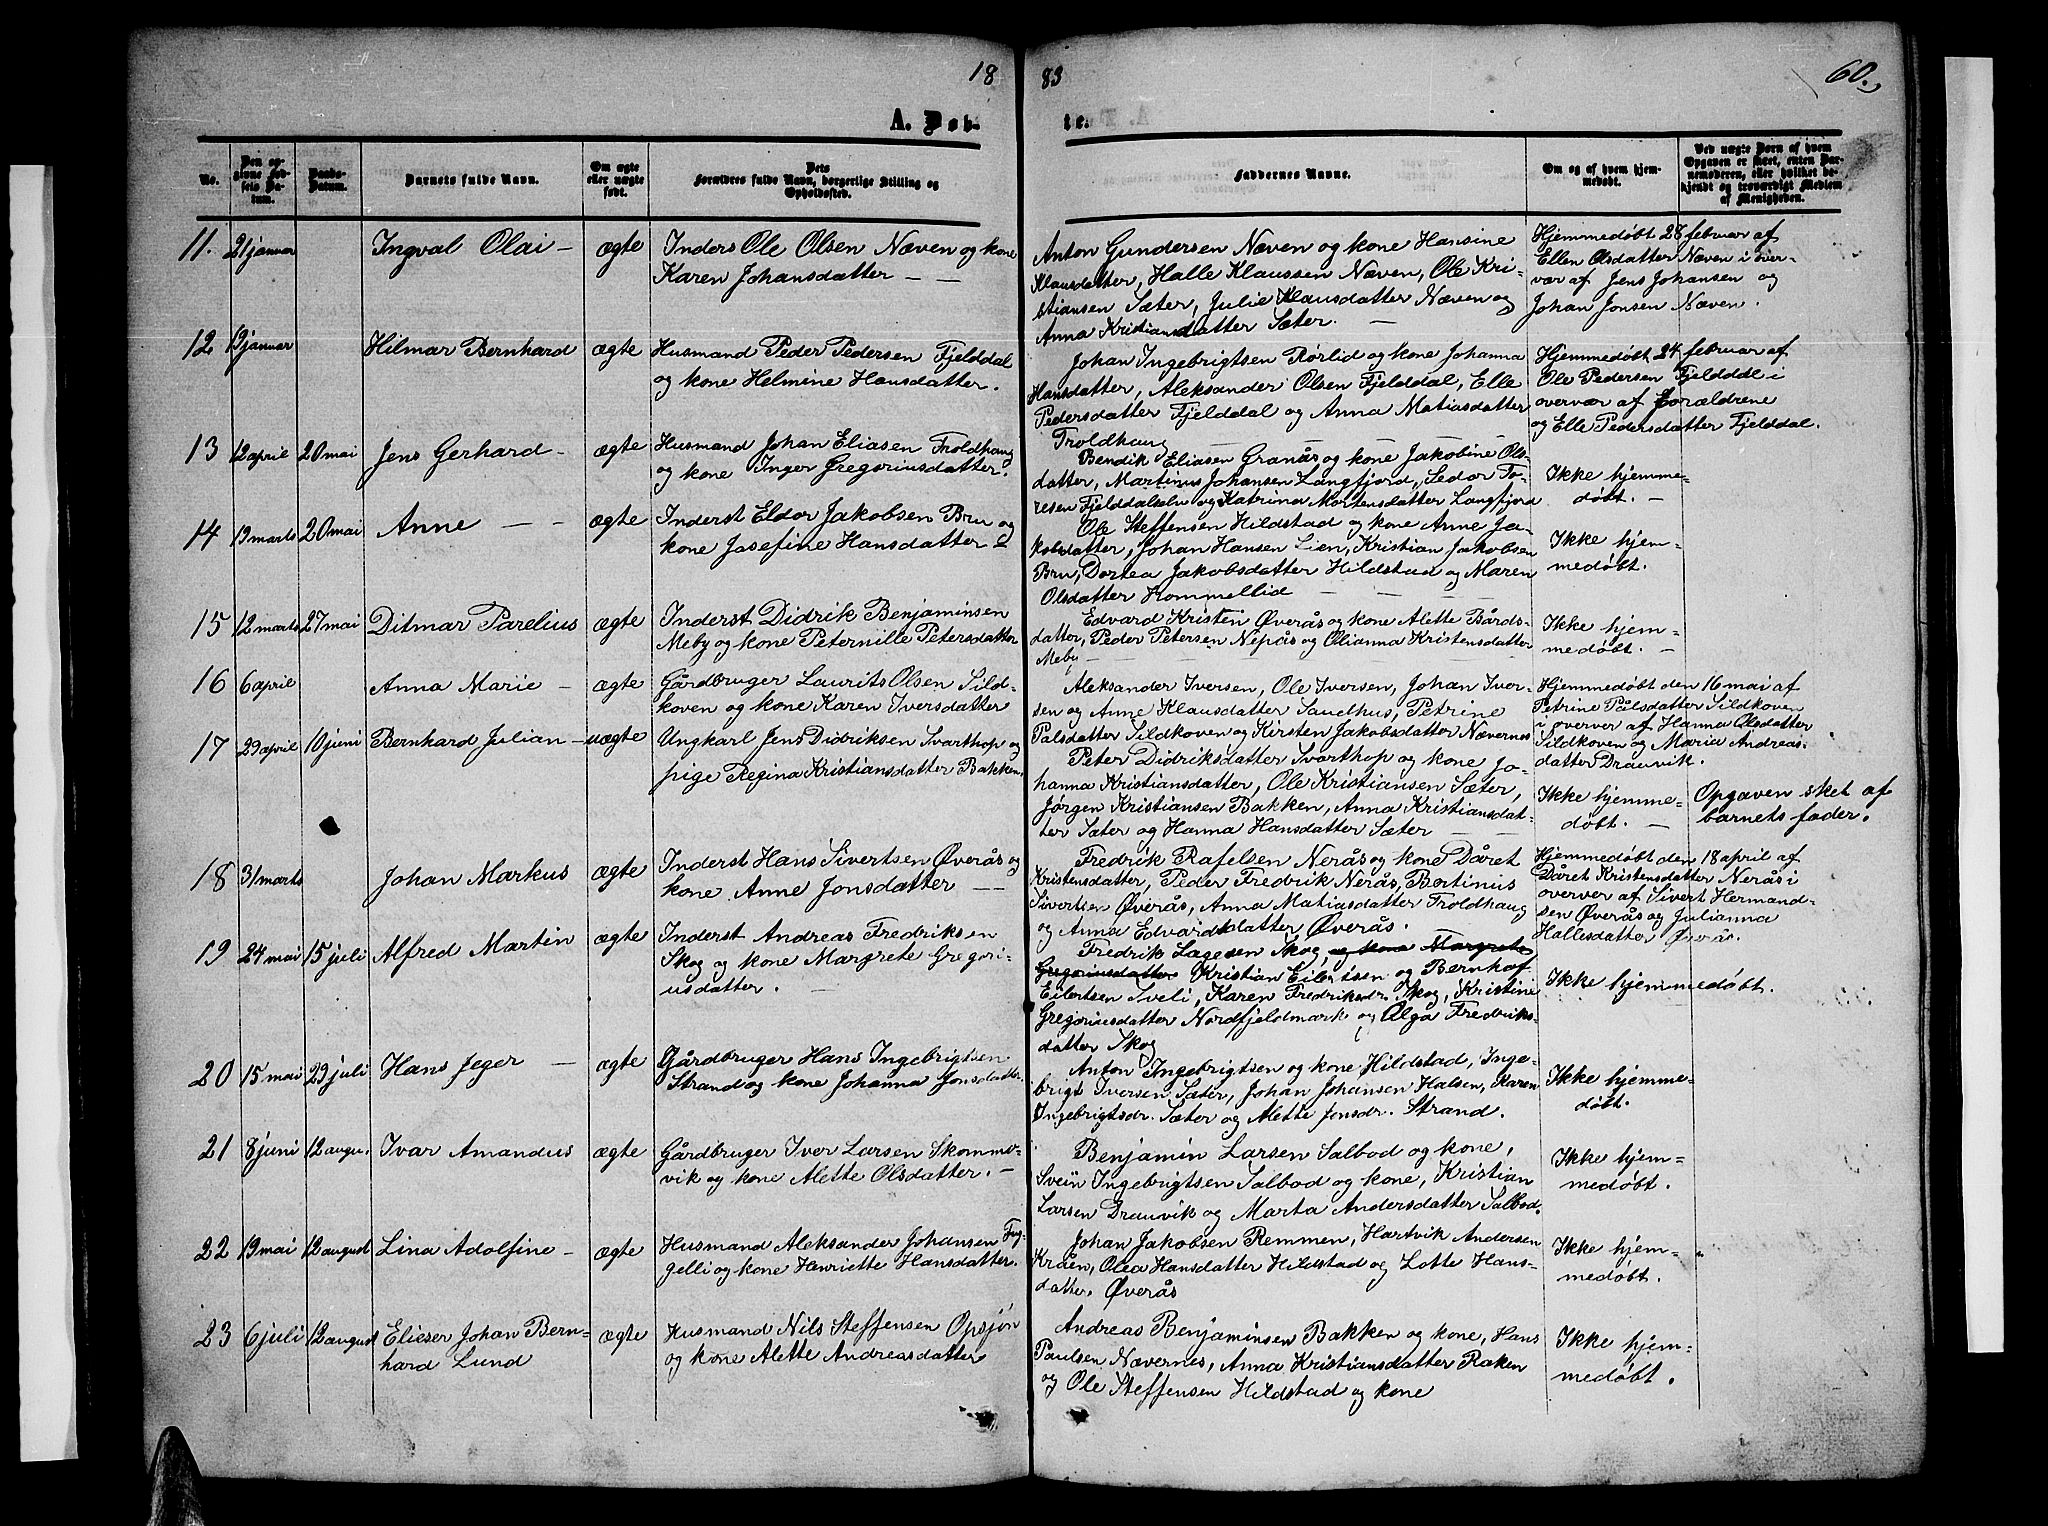 18
83
60.
A. Døb-
te.
No.
Den op-
givne Fød-
sels Da-
tum.
Daabs-
Datum.
Barnets fulde Navn.
Om ægte
eller uægte
født.
Dets
Forældres fulde Navn, borgerlige Stilling og
Opholdssted.
Faddernes Navne.
Om og af hvem hjem-
medøbt.
Ved uægte Børn af hvem
Opgaven er skeet, enten Bar-
nemoderen, eller hvilket be-
kjendt og troværdigt Medlem
af Menigheden.
11. 21 januar Ingval Olai — ægte
Inders Ole Olsen Næven og kone
Karen Johansdatter — —
Anton Gundersen Næven og kone Hansine
Klausdatter, Halle Klaussen Næven, Ole Kri-
stiansen Sæter, Julie Klausdatter Næven og
Anna Kristiansdatter Sæter. —
Hjemmedøbt 28 februar af
Ellen Olsdatter Næven i over-
vær af Jens Johansen og
Johan Jonsen Næven.
12 19 januar Hilmar Bernhard ægte
Husmand Peder Pedersen Fjelddal
og kone Helmine Hansdatter.
Johan Ingebrigtsen Rørlid og kone Johanna
Hansdatter, Aleksander Olsen Fjelddal, Elle
Pedersdatter Fjelddal og Anna Matiasdatter
Troldhaug — — — — —
Hjemmedøbt 24 februar af
Ole Pedersen Fjelddal i
overvær af Forældrene
og Elle Pedersdatter Fjelddal.
13 12 april 20 mai Jens Gerhard — ægte
Husmand Johan Eliasen Troldhaug
og kone Inger Gregoriusdatter.
Bendik Eliasen Granås og kone Jakobine Ols-
datter, Martinus Johansen Langfjord, Sedor To-
resen Fjelddalselv og Katrina Mortensdatter Langfjord
Ikke hjemme-
døbt. —
14 19 marts 20 mai Anne — — ægte
Inderst Eldor Jakobsen Bru og
kone Josefine Hansdatter
Ole Steffensen Hildstad og kone Anne Ja-
kobsdatter, Johan Hansen Lien, Kristian Jakobsen
Bru, Dortea Jakobsdatter Hildstad og Maren
Olsdatter Hommellid — — — —
Ikke hjem-
medøbt.
15 12 marts 27 mai Ditmar Parelius ægte
Inderst Didrik Benjaminsen
Meby og kone Peternille Petersdatter
Edvard Kristen Øverås og kone Alette Bårds-
datter, Peder Petersen Nepås og Olianna Kristensdatter
Meby — — — — —
Ikke hjem-
medøbt. —
16 6 april Anna Marie — ægte
Gårdbruger Laurits Olsen Sild-
koven og kone Karen Iversdatter
Aleksander Iversen, Ole Iversen, Johan Iver-
sen og Anne Klausdatter Sandhus, Petrine
Pålsdatter Sildkoven og Kirsten Jakobsdatter Nævernes
Hjemmedøbt den 16 mai af
Petrine Pålsdatter Sildkoven
i overver af Hanna Olsdatter
Sildkoven og Maria Andreas-
datter Drauvik.
17 29 april 10 juni Bernhard Julian — uægte
Ungkarl Jens Didriksen Svarthop og
pige Regina Kristiansdatter Bakken.
Peter Didriksdatter Svarthop og kone Jo-
hanna Kristiansdatter, Ole Kristiansen Sæter,
Jørgen Kristiansen Bakken, Anna Kristiansdat-
ter Sæter og Hanna Hansdatter Sæter — —
Ikke hjemme-
døbt. —
Opgaven sket af
barnets fader.
18 31 marts Johan Markus ægte
Inderst Hans Sivertsen Øverås og
kone Anne Jonsdatter — —
Fredrik Rafelsen Nerås og kone Dåret
Kristensdatter, Peder Fredrik Nerås, Bertinius
Sivertsen Øverås, Anna Matiasdatter Troldhaug
og Anna Edvardsdatter Øverås.
Hjemmedøbt den 18 april af
Dåret Kristensdatter Nerås i
overver af Sivert Hermand-
sen Øverås og Julianna
Hallesdatter Øverås.
19 24 mai 15 juli Alfred Martin ægte
Inderst Andreas Fredriksen
Skog og kone Margrete Gregori-
usdatter. —
Fredrik Lagesen Skog, og kone Margrete
Gregoriusdatter Kristian Eilertsen og Bernhof
Eilertsen Sveli, Karen Fredriksdr. Skog, Kristine
Gregoriusdatter Nordfjeldmark og Olga Fredriks-
datter Skog
Ikke hjemmedøbt.
20 15 mai 29 juli Hans Jeger — ægte
Gårdbruger Hans Ingebrigtsen
Strand og kone Johanna Jonsdatter.
Anton Ingebrigtsen og kone Hildstad, Inge-
brigt Iversen Sæter, Johan Johansen Halsen, Karen
Ingebrigtsdr. Sæter og Alette Jonsdr. Strand.
Ikke hjemme-
døbt.
21 8 juni 12 augu. Ivar Amandus ægte
Gårdbruger Iver Larsen Skomme-
vik og kone Alette Olsdatter. —
Benjamin Larsen Salbod og kone,
Svein Ingebrigtsen Salbod og kone, Kristian
Larsen Drauvik og Marta Andersdatter Salbod.
Ikke hjem-
medøbt.
22 19 mai 12 august Lina Adolfine — ægte
Husmand Aleksander Johansen Fug-
gelli og kone Henriette Hansdatter.
Johan Jakobsen Remmen, Hartvik Andersen
Kråen, Olea Hansdatter Hildstad og Lotte Hans-
datter Øverås
Ikke hjem-
medøbt.
23 6 juli 12 august Elieser Johan Bern-
hard Lund
ægte
Husmand Nils Steffensen Opsjøn
og kone Alette Andreasdatter
Andreas Benjaminsen Bakken og kone, Hans
Paulsen Nævernes, Anna Kristiansdatter Raken
og Ole Steffensen Hildstad og kone
Ikke hjem-
medøbt.